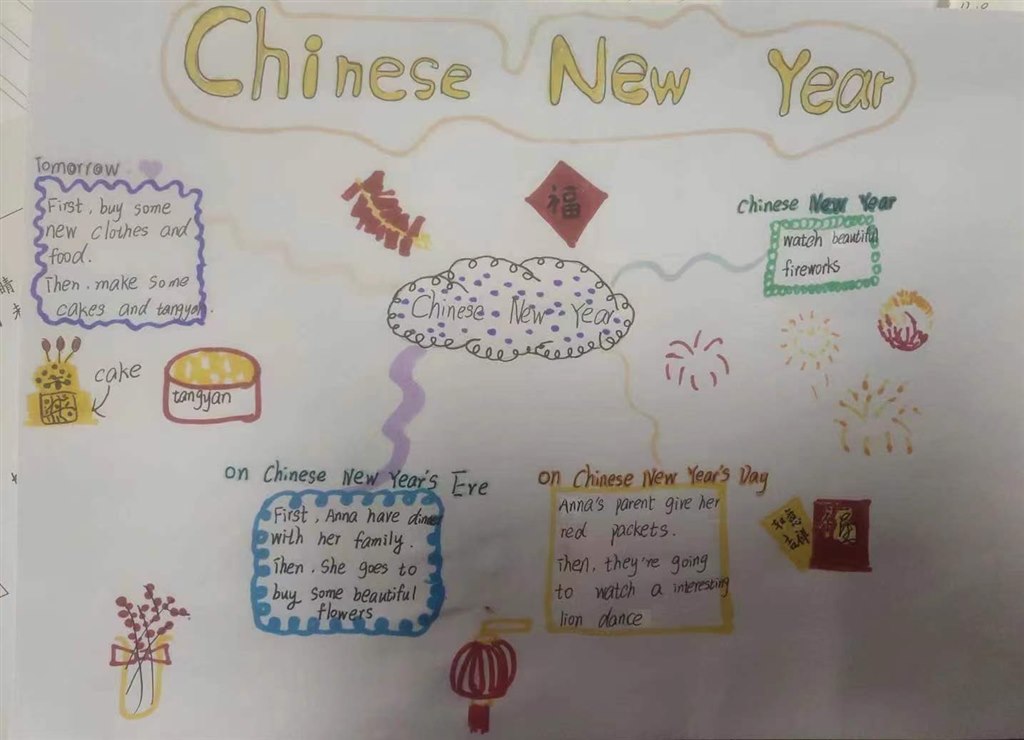 Chinese New Year
福
Tomorrow
First, buy some
new clothes and
food.
Then, make some
cakes and tangyan.
cake
tangyan
Chinese New Year
Chinese New Year
watch beautiful
fireworks
on Chinese New Year's Eve
First, Anna have dinner
with her family.
Then, She goes to
buy some beautiful
flowers
on Chinese New Year's Day
Anna's parent give her
red packets.
Then, they're going
to watch a interesting
lion dance